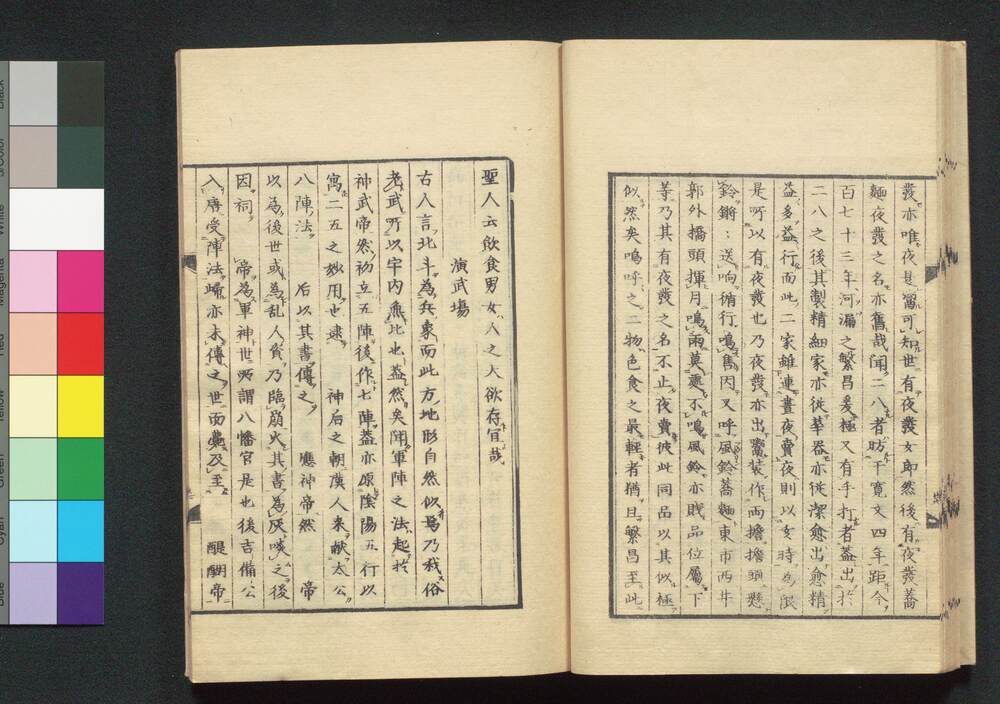 發亦唯夜是寓可知世有夜發女即然後有夜發蕎
麵夜發之名亦舊哉聞二八者昉于寛文四年距今
百七十三年河漏之繁昌爰極又有手打者蓋出於
二八之後其製精細家亦従華器亦従潔愈出愈精
益多益行而此二家雖連晝夜賣夜則以女時為限
是所以有夜發也乃夜發亦出鬻装作両擔擔頭懸
鈴鏘送响循行鳴售因又呼風鈴蕎麵東市西井
郭外橋頭揮月鳴雨莫處不鳴風鈴亦賎品位屬下
等乃其有夜發之名不止夜賣彼此同品以其似極
似然矣嗚呼之二物色食之最輕者猶且繁昌至此
聖人云飲食男女人之大欲存宜哉
演武場
古人言北斗為兵象而此方地形自然似焉乃我俗
老武所以宇内無比也蓋然矣聞軍陣之法起於
神武帝然初立五陣後作七陣蓋亦原陰陽五行以
寓二五之妙用也逮 神后之朝漢人来献太公
八陣法 后以其書傳之 應神帝然 帝
以為後世或為乱人資乃臨崩火其書為灰啖之後
因祠 帝為軍神世所謂八幡宮是也後吉備公
入唐受陣法歸亦未傳之世而薨及至 醍醐帝
Black
3/Color
White
Magenta
Red
Yellow
Green
Cyan
Blue